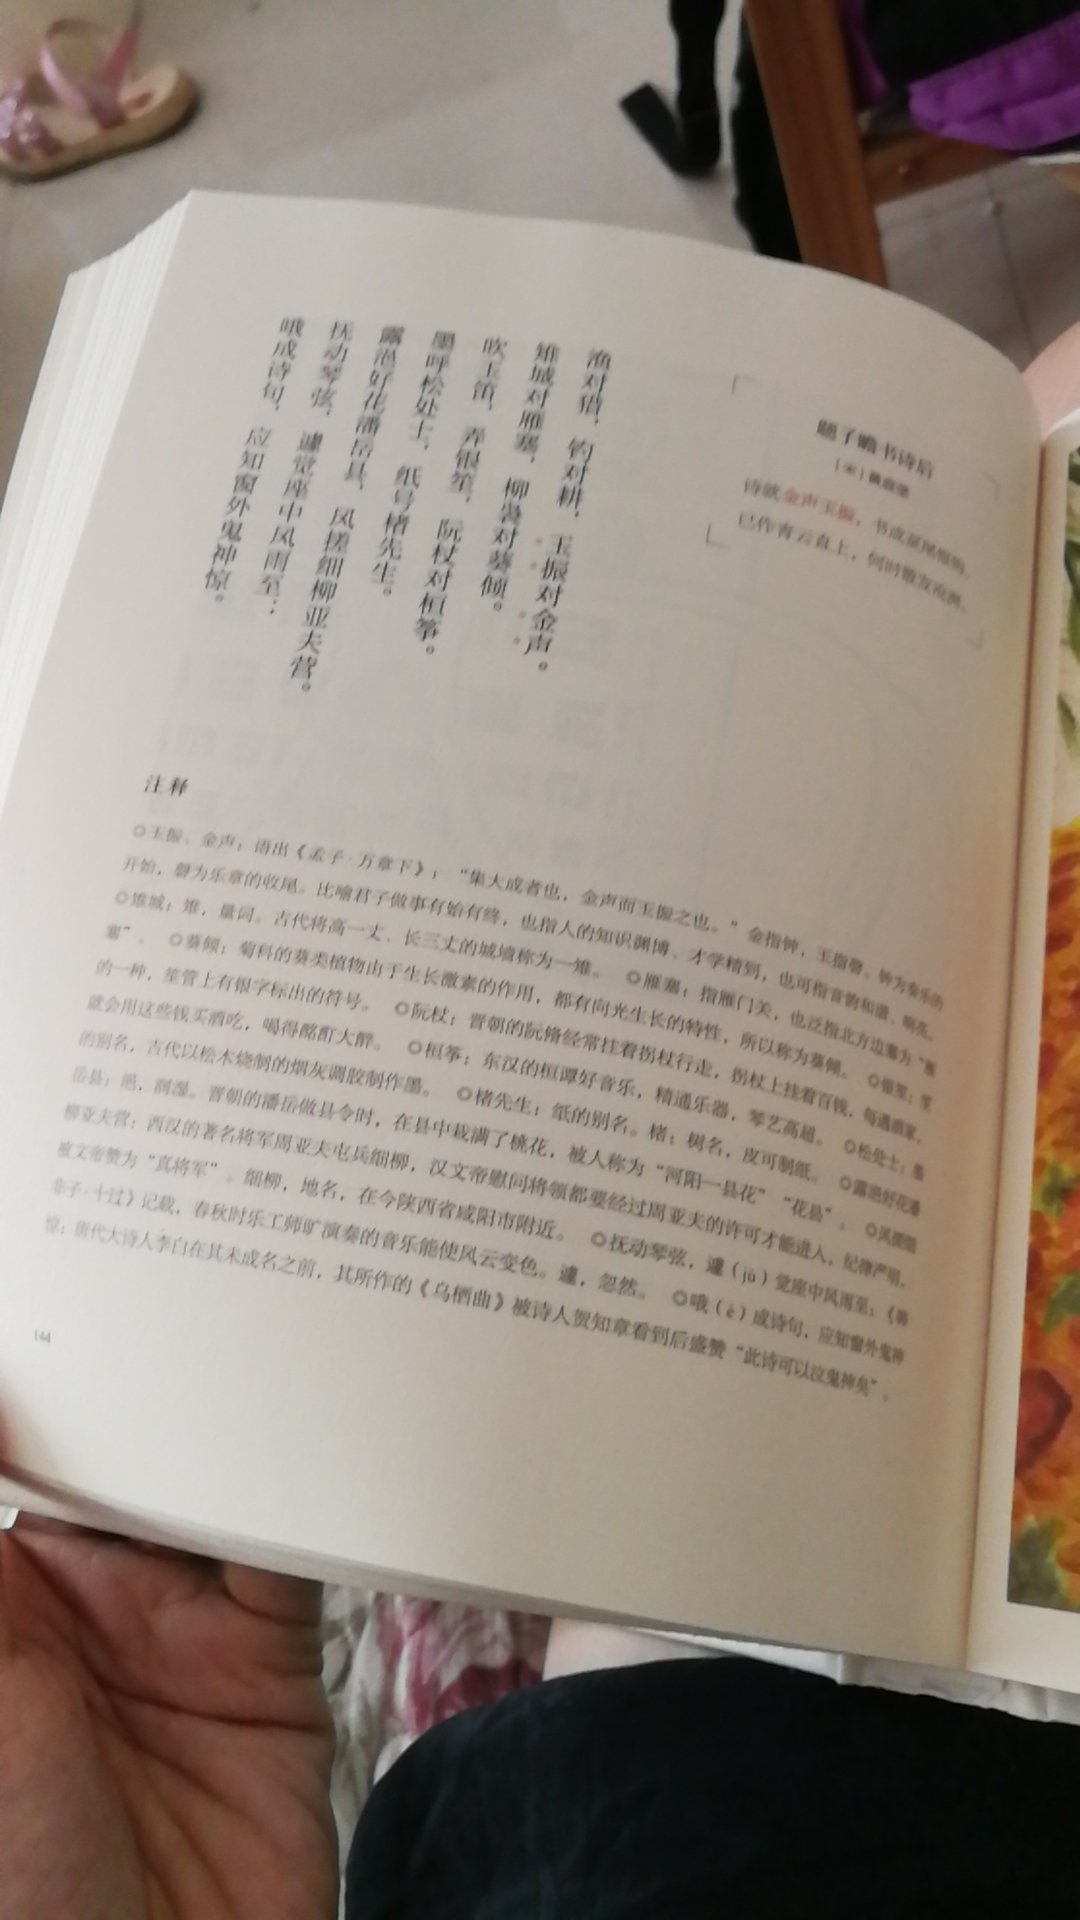 题子瞻书诗后
［宋］黄庭坚
诗就金声玉振，书成虿尾银钩。
已作青云直上，何时散发沧洲。
渔对猎，钓对耕，玉振对金声。
雉城对雁塞，柳袅对葵倾。
吹玉笛，弄银笙，阮杖对桓筝。
墨呼松处士，纸号楮先生。
露浥好花潘岳县，风搓细柳亚夫营。
抚动琴弦，遽觉座中风雨至；
哦成诗句，应知窗外鬼神惊。
注释
◎玉振、金声：语出《孟子·万章下》：“集大成者也，金声而玉振之也。”金指钟，玉指磬。钟为奏乐的
开始，磬为乐章的收尾。比喻君子做事有始有终，也指人的知识渊博、才学精到，也可指音韵和谐、响亮。
◎雉城：雉，量词。古代将高一丈、长三丈的城墙称为一雉。 ◎雁塞：指雁门关，也泛指北方边塞为“雁
塞”。 ◎葵倾：菊科的葵类植物由于生长激素的作用，都有向光生长的特性，所以称为葵倾。 ◎银笙：笙
的一种，笙管上有银字标出的符号。 ◎阮杖：晋朝的阮脩经常拄着拐杖行走，拐杖上挂着百钱，每遇酒家，
就会用这些钱买酒吃，喝得酩酊大醉。 ◎桓筝：东汉的桓谭好音乐，精通乐器，琴艺高超。 ◎松处士：墨
的别名，古代以松木烧制的烟灰调胶制作墨。 ◎楮先生：纸的别名。楮：树名，皮可制纸。 ◎露浥好花潘
岳县：浥，润湿。晋朝的潘岳做县令时，在县中栽满了桃花，被人称为“河阳一县花”“花县”。 ◎风搓细
柳亚夫营：西汉的著名将军周亚夫屯兵细柳，汉文帝慰问将领都要经过周亚夫的许可才能进入，纪律严明，
被文帝赞为“真将军”。细柳，地名，在今陕西省咸阳市附近。 ◎抚动琴弦，遽（jù）觉座中风雨至：《韩
非子·十过》记载，春秋时乐工师旷演奏的音乐能使风云变色。遽，忽然。 ◎哦（é）成诗句，应知窗外鬼神
惊：唐代大诗人李白在其未成名之前，其所作的《乌栖曲》被诗人贺知章看到后盛赞“此诗可以泣鬼神矣”。
144